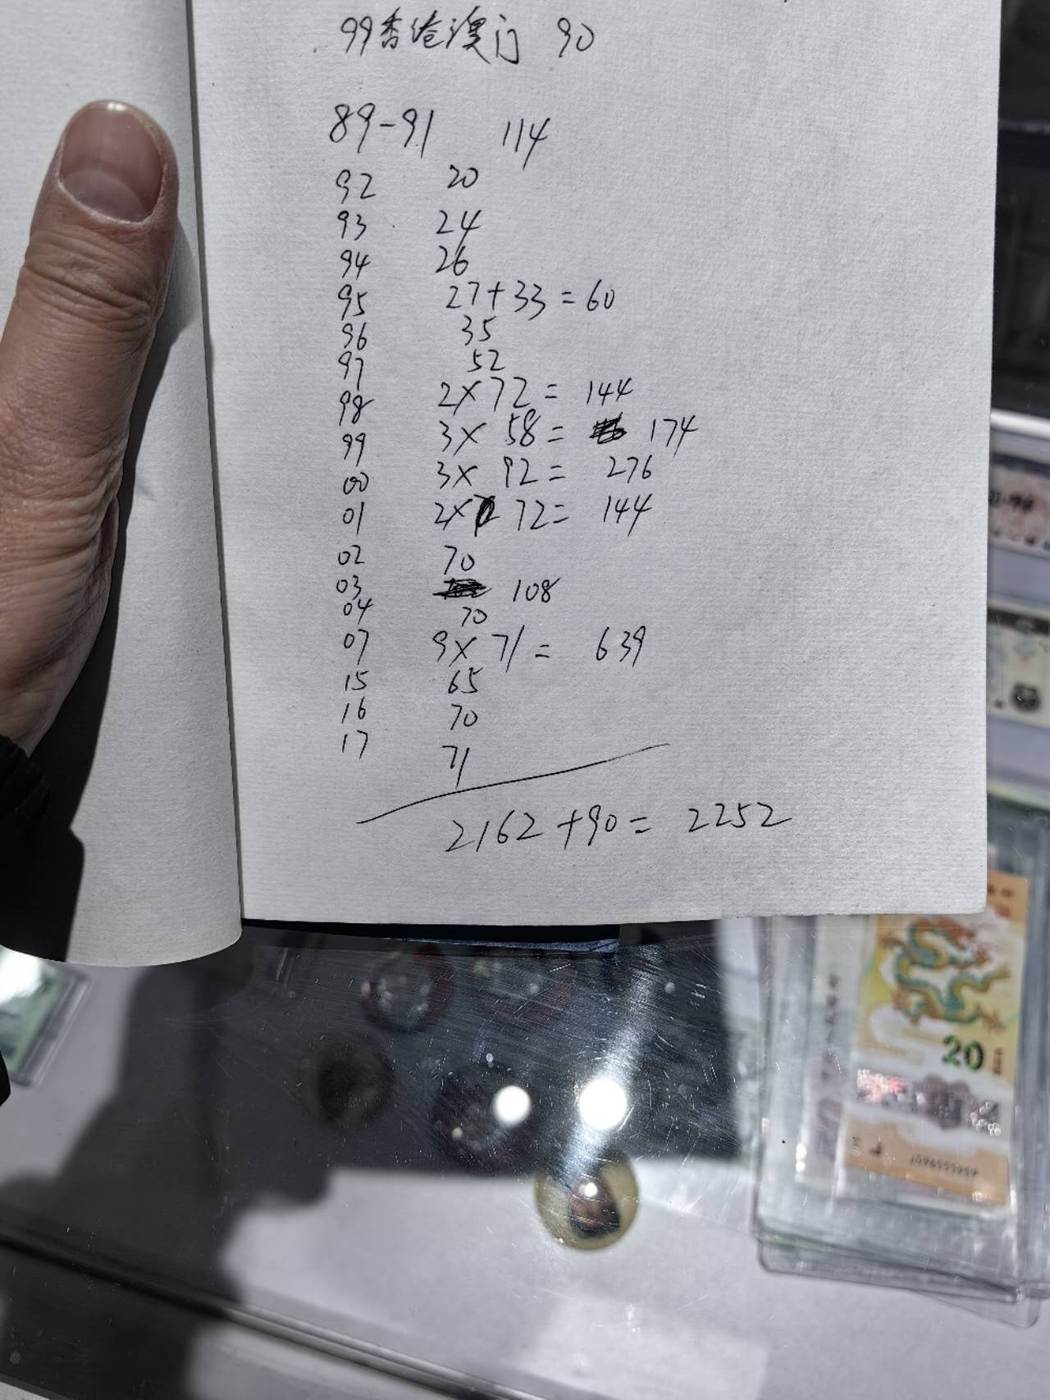 99香港澳门 90
89-91 114
92 20
93 24
94 26
95 27+33=60
96 35
97 52
98 2×72= 144
99 3×58= 174
00 3×92= 276
01 2× 72= 144
02 70
03 108
04 70
07 9×71= 639
15 65
16 70
17 71
2162+90= 2252
20